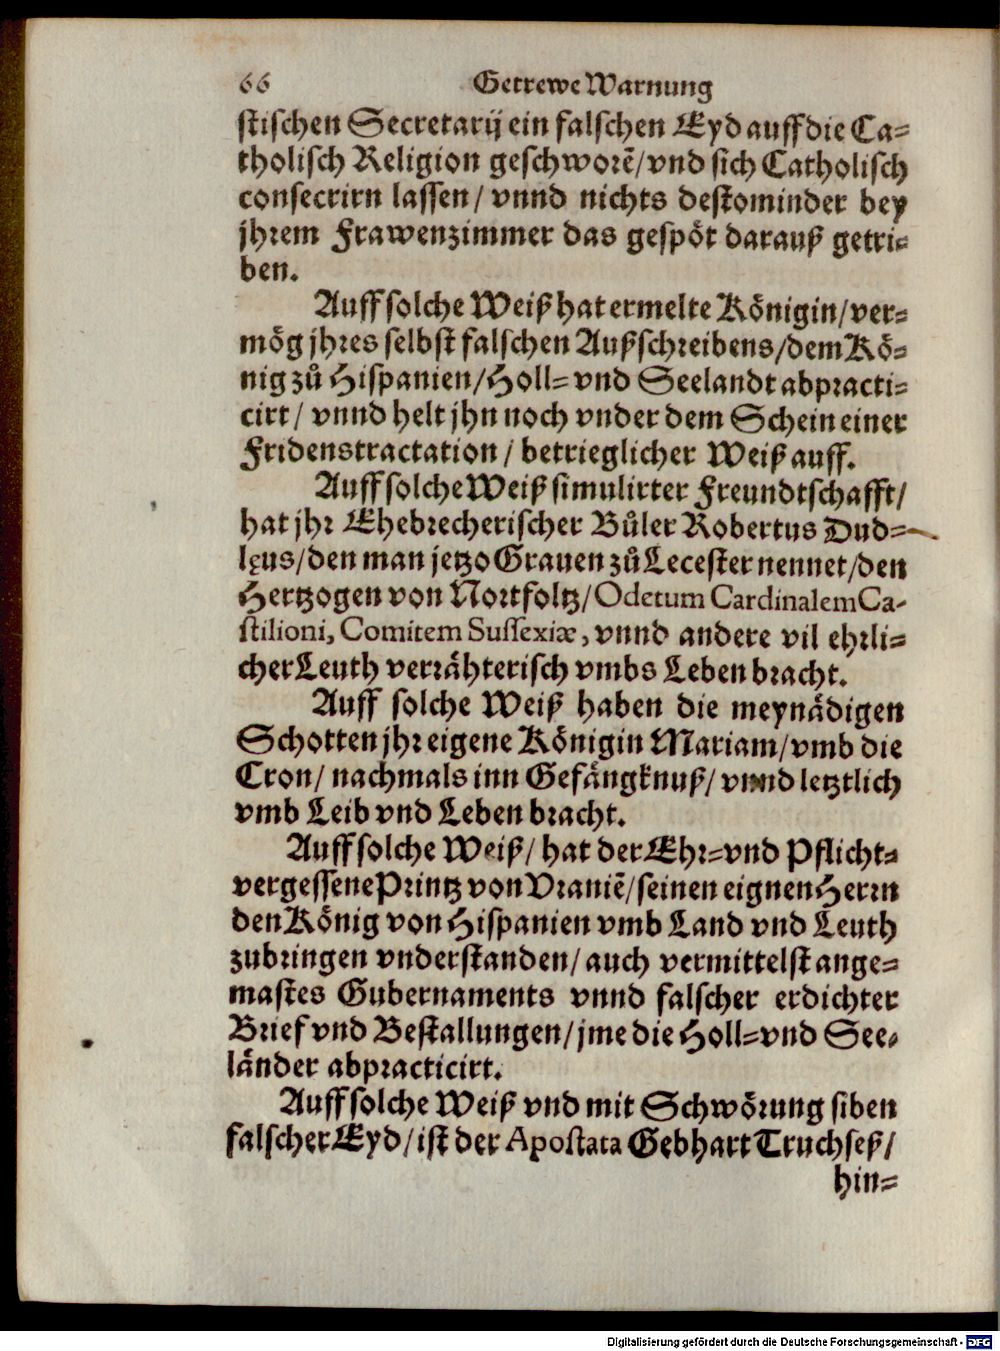 66 Getrewe Warnung
stischen Secretarij ein falschen Eyd auff die Ca=
tholisch Religion geschworẽ/vnd sich Catholisch
consecrirn lassen/ vnnd nichts destominder bey
jhrem Frawenzimmer das gespöt darauß getri=
ben.
Auff solche Weiß hat ermelte Königin/ver=
mög jhres selbst falschen Außschreibens/dem Kö=
nig zů Hispanien/Holl= vnd Seelandt abpracti=
cirt/ vnnd helt jhn noch vnder dem Schein einer
Fridenstractation/ betrieglicher Weiß auff.
Auff solche Weiß simulirter Freundtschafft/
hat jhr Ehebrecherischer Bůler Robertus Dud=
lęus/den man jetzo Grauen zů Lecester nennet/den
Hertzogen von Nortfoltz/Odetum Cardinalem Ca-
stilioni, Comitem Sussexiæ, vnnd andere vil ehrli=
cher Leuth verrähterisch vmbs Leben bracht.
Auff solche Weiß haben die meynädigen
Schotten jhr eigene Königin Mariam/vmb die
Cron/ nachmals inn Gefängknuß/ vnnd letztlich
vmb Leib vnd Leben bracht.
Auff solche Weiß/ hat der Ehr=vnd Pflicht=
vergessene Printz von Vraniẽ/seinen eignen Herrn
den König von Hispanien vmb Land vnd Leuth
zubringen vnderstanden/ auch vermittelst ange=
mastes Gubernaments vnnd falscher erdichter
Brief vnd Bestallungen/jme die Holl=vnd See=
länder abpracticirt.
Auff solche Weiß vnd mit Schwörung siben
falscher Eyd/ist der Apostata Gebhart Truchseß/
hin=
Digitalisierung gefördert durch die Deutsche Forschungsgemeinschaft - DFG